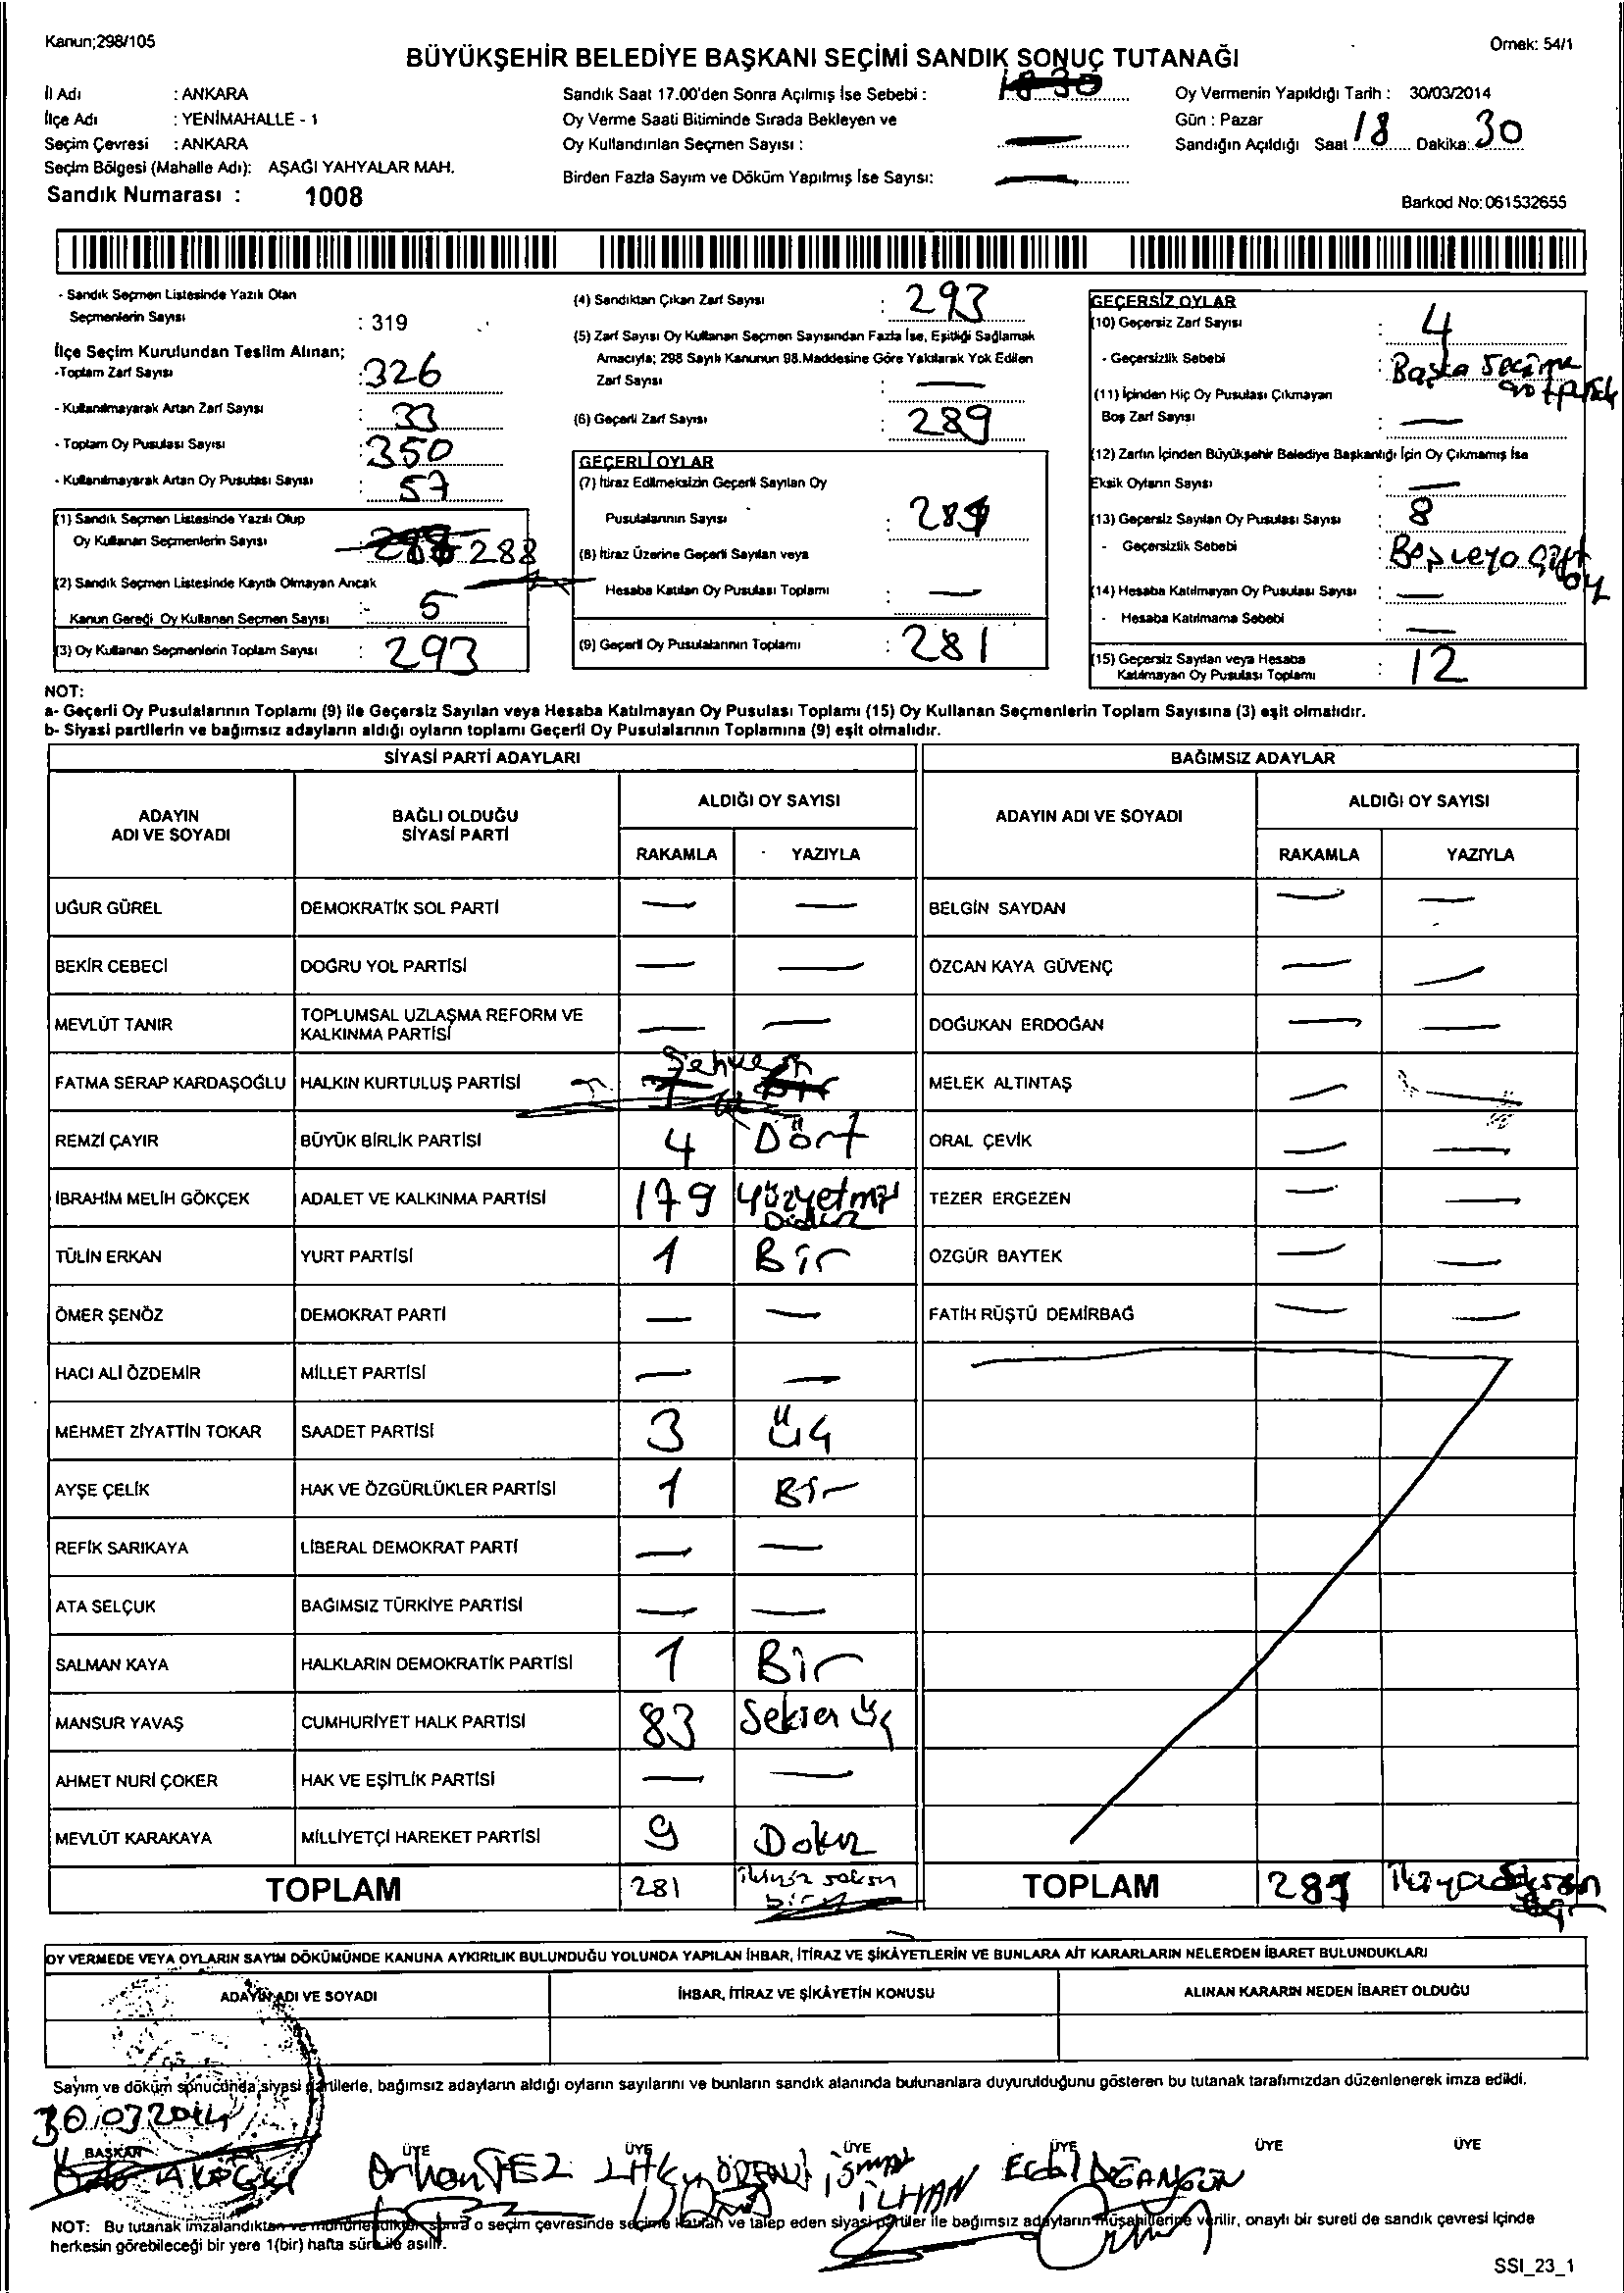 Kanun;298/105
Örnek: 54/1
BÜYÜKŞEHİR BELEDİYE BAŞKANI SEÇİMİ SANDIK SONUÇ TUTANAĞI
İl Adı : ANKARA
İlçe Adı : YENİMAHALLE - 1
Seçim Çevresi : ANKARA
Seçim Bölgesi (Mahalle Adı): AŞAĞI YAHYALAR MAH.
Sandık Numarası : 1008
Sandık Saat 17.00'den Sonra Açılmış İse Sebebi :
Oy Verme Saati Bitiminde Sırada Bekleyen ve
Oy Kullandırılan Seçmen Sayısı : —
Birden Fazla Sayım ve Döküm Yapılmış İse Sayısı: —
Oy Vermenin Yapıldığı Tarih : 30/03/2014
Gün : Pazar
Sandığın Açıldığı Saat 18 Dakika: 30
Barkod No: 061532655
- Sandık Seçmen Listesinde Yazılı Olan
Seçmenlerin Sayısı : 319
İlçe Seçim Kurulundan Teslim Alınan;
-Toplam Zarf Sayısı : 326
- Kullanılmayarak Artan Zarf Sayısı : 33
- Toplam Oy Pusulası Sayısı : 350
- Kullanılmayarak Artan Oy Pusulası Sayısı : 57
(1) Sandık Seçmen Listesinde Yazılı Olup
Oy Kullanan Seçmenlerin Sayısı 288
(2) Sandık Seçmen Listesinde Kayıtlı Olmayan Ancak
Kanun Gereği Oy Kullanan Seçmen Sayısı : 5
(3) Oy Kullanan Seçmenlerin Toplam Sayısı : 293
(4) Sandıktan Çıkan Zarf Sayısı : 293
(5) Zarf Sayısı Oy Kullanan Seçmen Sayısından Fazla İse, Eşitliği Sağlamak
Amacıyla; 298 Sayılı Kanunun 98.Maddesine Göre Yakılarak Yok Edilen
Zarf Sayısı : —
(6) Geçerli Zarf Sayısı : 289
GEÇERLİ OYLAR
(7) İtiraz Edilmeksizin Geçerli Sayılan Oy
Pusulalarının Sayısı : 281
(8) İtiraz Üzerine Geçerli Sayılan veya
Hesaba Katılan Oy Pusulası Toplamı : —
(9) Geçerli Oy Pusulalarının Toplamı : 281
GEÇERSİZ OYLAR
(10) Geçersiz Zarf Sayısı : 4
- Geçersizlik Sebebi : Başka Seçime
(11) İçinden Hiç Oy Pusulası Çıkmayan
Boş Zarf Sayısı : —
(12) Zarfın İçinden Büyükşehir Belediye Başkanlığı İçin Oy Çıkmamış İse
Eksik Oyların Sayısı : —
(13) Geçersiz Sayılan Oy Pusulası Sayısı : 8
- Geçersizlik Sebebi : Boş veya Çift
oy
(14) Hesaba Katılmayan Oy Pusulası Sayısı : —
- Hesaba Katılmama Sebebi : —
(15) Geçersiz Sayılan veya Hesaba
Katılmayan Oy Pusulası Toplamı : 12
NOT:
a- Geçerli Oy Pusulalarının Toplamı (9) ile Geçersiz Sayılan veya Hesaba Katılmayan Oy Pusulası Toplamı (15) Oy Kullanan Seçmenlerin Toplam Sayısına (3) eşit olmalıdır.
b- Siyasi partilerin ve bağımsız adayların aldığı oyların toplamı Geçerli Oy Pusulalarının Toplamına (9) eşit olmalıdır.
SİYASİ PARTİ ADAYLARI BAĞIMSIZ ADAYLAR
ADAYIN ADI VE SOYADI BAĞLI OLDUĞU SİYASİ PARTİ ALDIĞI OY SAYISI ADAYIN ADI VE SOYADI ALDIĞI OY SAYISI
RAKAMLA YAZIYLA RAKAMLA YAZIYLA
UĞUR GÜREL DEMOKRATİK SOL PARTİ — — BELGİN SAYDAN — —
BEKİR CEBECİ DOĞRU YOL PARTİSİ — — ÖZCAN KAYA GÜVENÇ — —
MEVLÜT TANIR TOPLUMSAL UZLAŞMA REFORM VE KALKINMA PARTİSİ — — DOĞUKAN ERDOĞAN — —
FATMA SERAP KARDAŞOĞLU HALKIN KURTULUŞ PARTİSİ Sehven MELEK ALTINTAŞ — —
REMZİ ÇAYIR BÜYÜK BİRLİK PARTİSİ 4 Dört ORAL ÇEVİK — —
İBRAHİM MELİH GÖKÇEK ADALET VE KALKINMA PARTİSİ 179 TEZER ERGEZEN — —
TÜLİN ERKAN YURT PARTİSİ 1 Bir ÖZGÜR BAYTEK — —
ÖMER ŞENÖZ DEMOKRAT PARTİ — — FATİH RÜŞTÜ DEMİRBAĞ — —
HACI ALİ ÖZDEMİR MİLLET PARTİSİ — —
MEHMET ZİYATTİN TOKAR SAADET PARTİSİ 3 Üç
AYŞE ÇELİK HAK VE ÖZGÜRLÜKLER PARTİSİ 1 Bir
REFİK SARIKAYA LİBERAL DEMOKRAT PARTİ — —
ATA SELÇUK BAĞIMSIZ TÜRKİYE PARTİSİ — —
SALMAN KAYA HALKLARIN DEMOKRATİK PARTİSİ 1 Bir
MANSUR YAVAŞ CUMHURİYET HALK PARTİSİ 83 Seksen üç
AHMET NURİ ÇOKER HAK VE EŞİTLİK PARTİSİ — —
MEVLÜT KARAKAYA MİLLİYETÇİ HAREKET PARTİSİ 9 Dokuz
TOPLAM 281 TOPLAM 281
OY VERMEDE VEYA OYLARIN SAYIM DÖKÜMÜNDE KANUNA AYKIRILIK BULUNDUĞU YOLUNDA YAPILAN İHBAR, İTİRAZ VE ŞİKÂYETLERİN VE BUNLARA AİT KARARLARIN NELERDEN İBARET BULUNDUKLARI
ADAYIN ADI VE SOYADI İHBAR, İTİRAZ VE ŞİKÂYETİN KONUSU ALINAN KARARIN NEDEN İBARET OLDUĞU
Sayım ve döküm sonucunda siyasi partilerle, bağımsız adayların aldığı oyların sayılarını ve bunların sandık alanında bulunanlara duyurulduğunu gösteren bu tutanak tarafımızdan düzenlenerek imza edildi.
30.03.2014
BAŞKAN ÜYE ÜYE ÜYE ÜYE ÜYE ÜYE
Orhan TEZ İsmail İLHAN Erdal DOĞANGÜN
NOT: Bu tutanak imzalandıktan ve mühürlendikten sonra o seçim çevresinde seçime katılan ve talep eden siyasi partiler ile bağımsız adayların müşahitlerine verilir, onaylı bir sureti de sandık çevresi içinde
herkesin görebileceği bir yere 1(bir) hafta süre ile asılır.
SSI_23_1